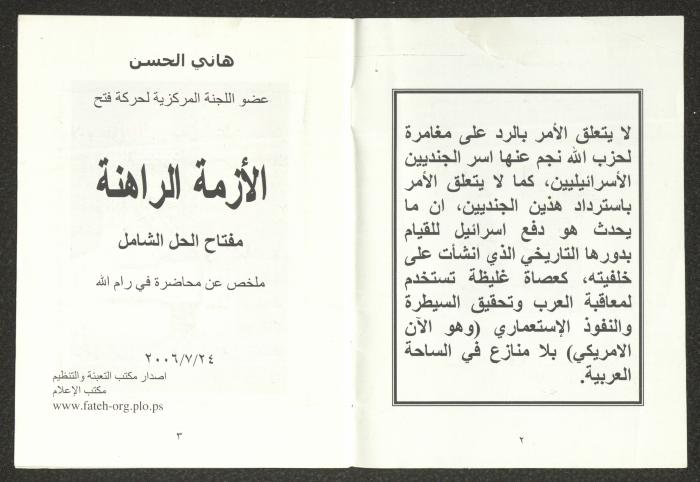 لا يتعلق الأمر بالرد على مغامرة
لحزب الله نجم عنها اسر الجنديين
الأسرائيليين، كما لا يتعلق الأمر
باسترداد هذين الجنديين، ان ما
يحدث هو دفع اسرائيل للقيام
بدورها التاريخي الذي انشأت على
خلفيته، كعصاة غليظة تستخدم
لمعاقبة العرب وتحقيق السيطرة
والنفوذ الإستعماري (وهو الآن
الامريكي) بلا منازع في الساحة
العربية.
٢
هاني الحسن
عضو اللجنة المركزية لحركة فتح
الأزمة الراهنة
مفتاح الحل الشامل
ملخص عن محاضرة في رام الله
٢٠٠٦/٧/٢٤
اصدار مكتب التعبئة والتنظيم
مكتب الإعلام
www.fateh-org.plo.ps
٣